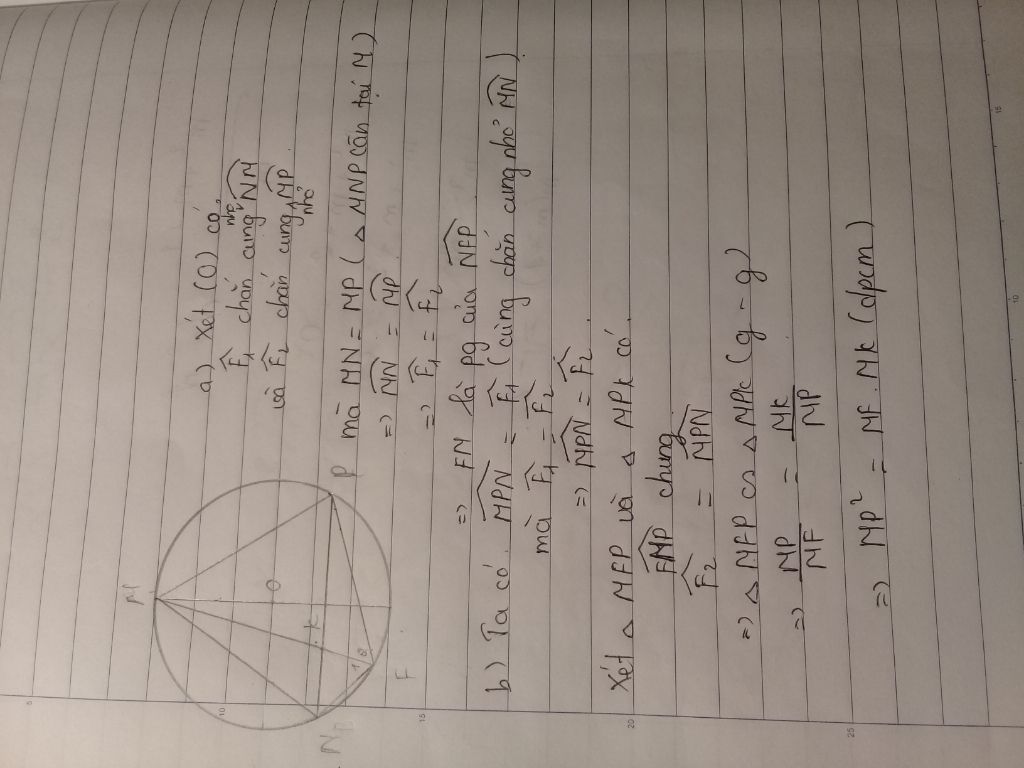 M
O
K
1 2
N
P
F
a) Xét (O) có
F̂₁ chắn cung nhỏ NM
và F̂₂ chắn cung nhỏ MP
mà MN = MP (△ MNP cân tại M)
=> MN = MP
=> F̂₁ = F̂₂
=> FM là pg của NFP
b) Ta có MPN = F̂₁ (cùng chắn cung nhỏ MN).
mà F̂₁ = F̂₂
=> MPN = F̂₂.
Xét △ MFP và △ MPK có.
FMP chung
F̂₂ = MPN
=> △ MFP ∽ △ MPK (g - g)
=> MP/MF = MK/MP
=> MP² = MF . MK (đpcm)
5
10
15
20
25
10
15